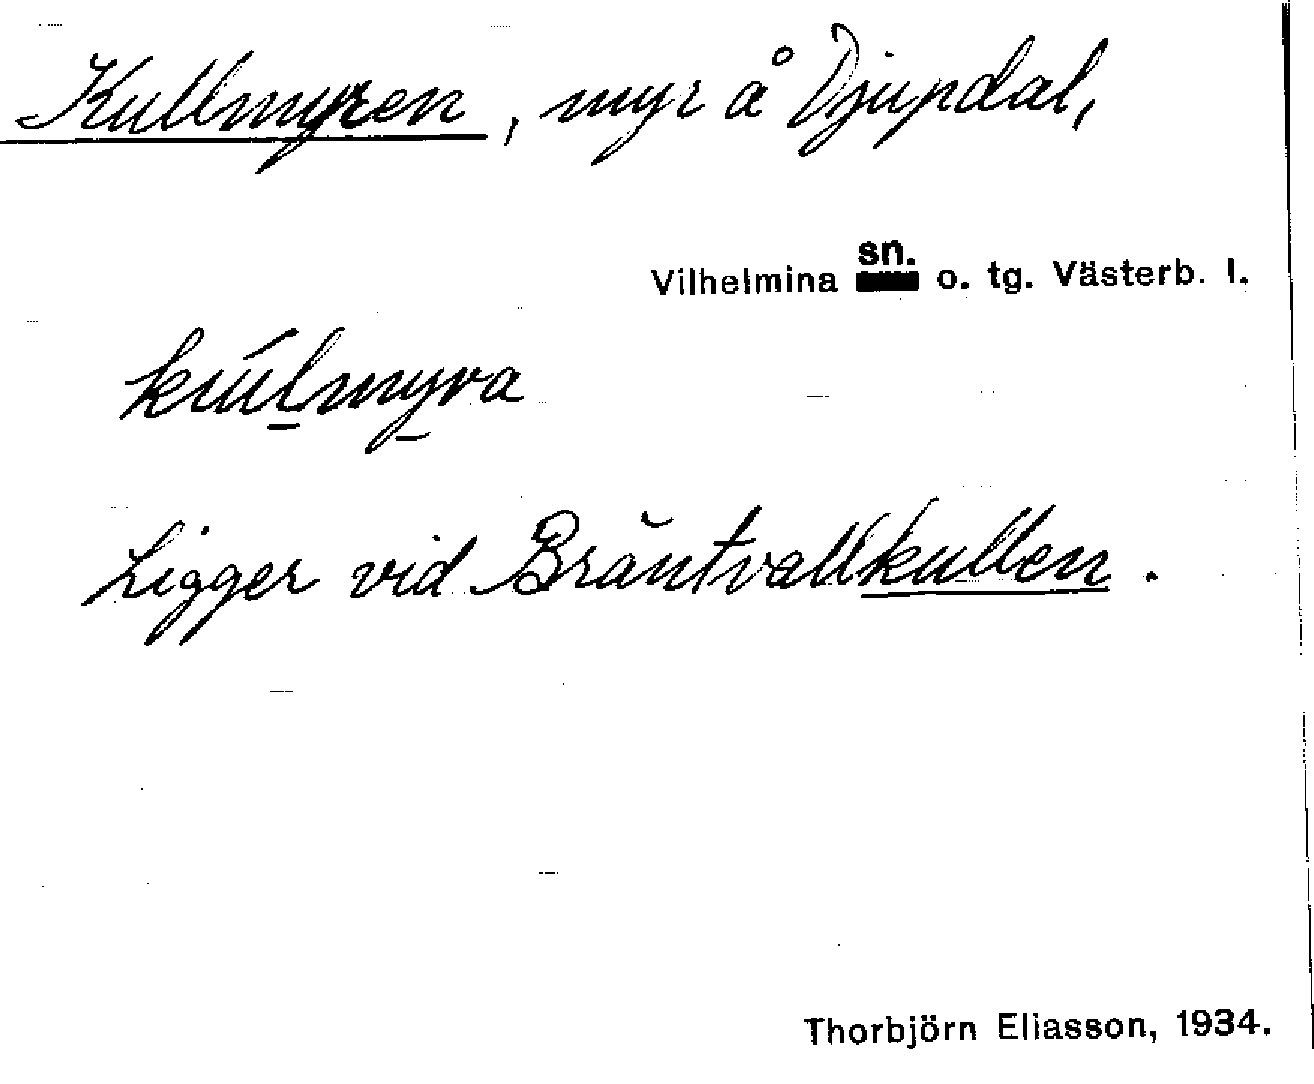 Kullmyren, myr å Djupdal,
Vilhelmina sn. o. tg. Västerb. l.
kúlmyra
Ligger vid Bräntvallkullen.
Thorbjörn Eliasson, 1934.